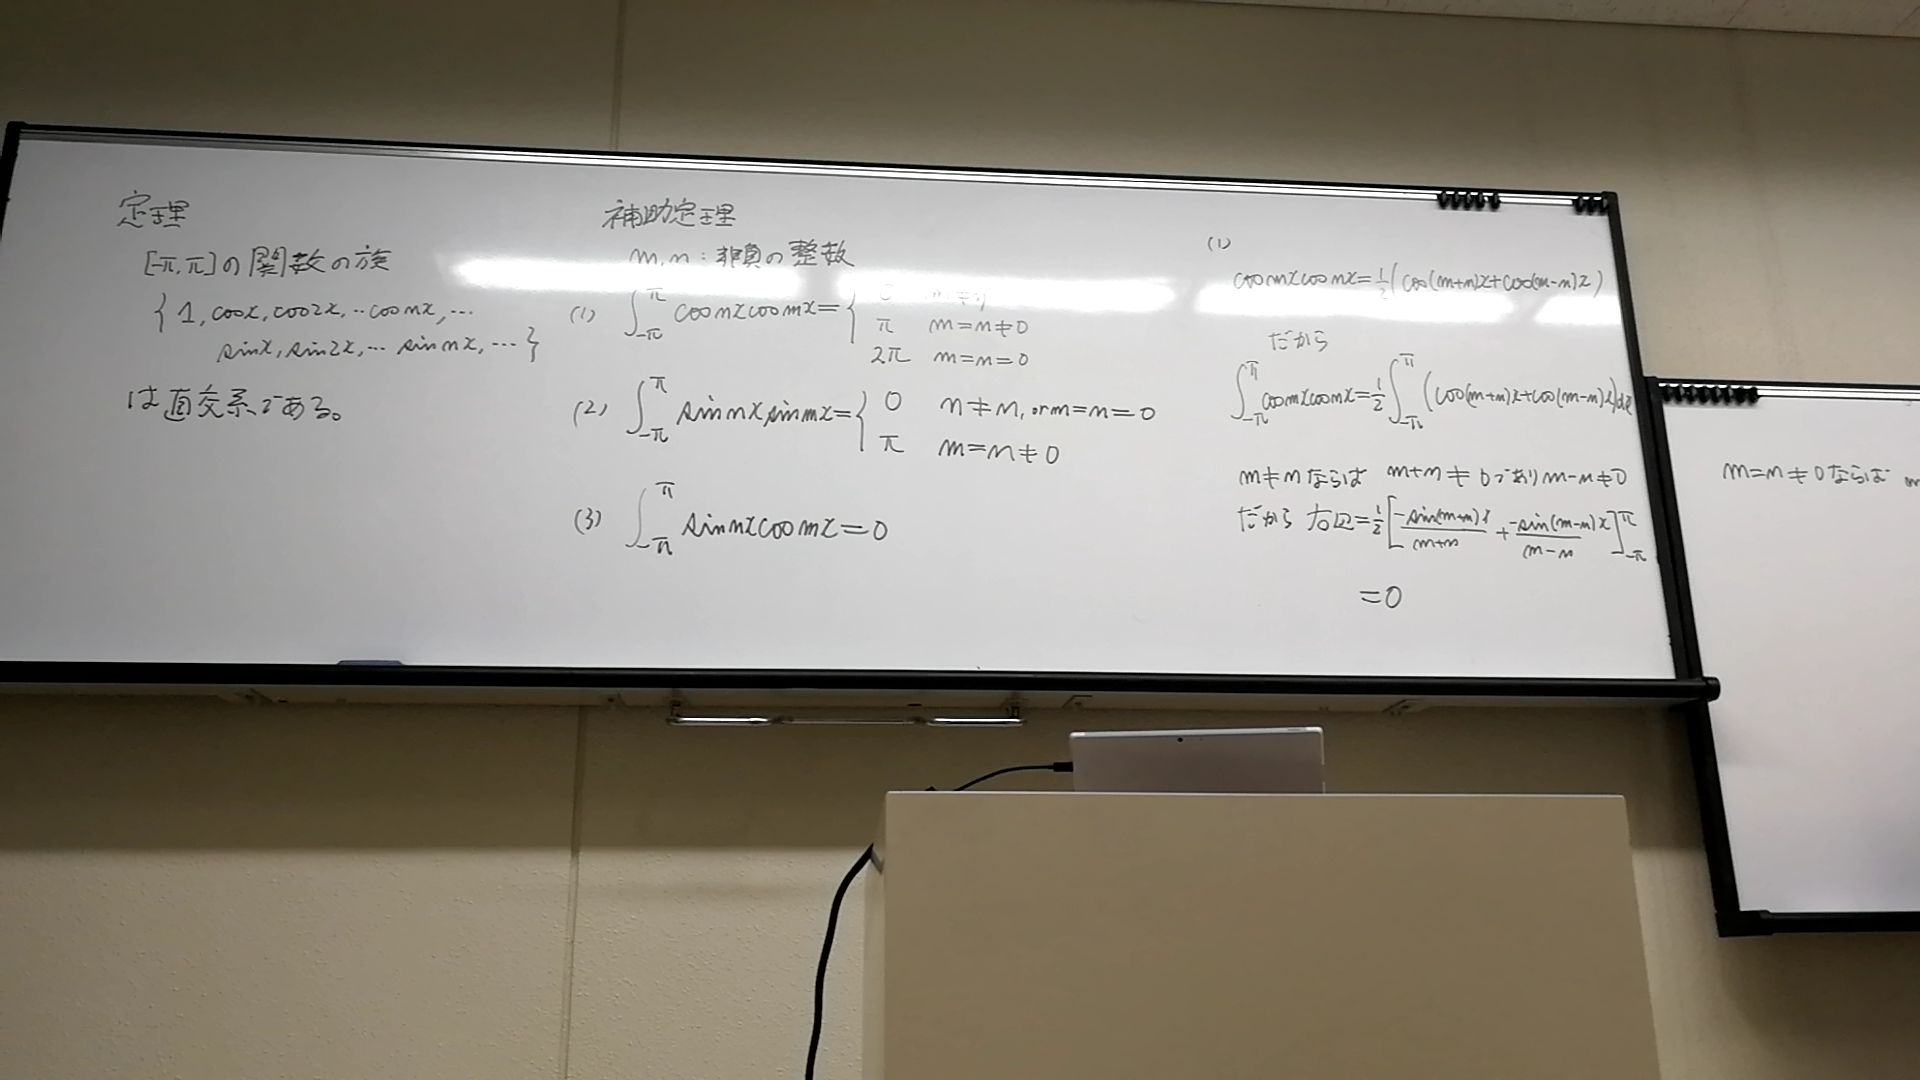 定理
[-π,π]の関数の族
{1, cosx, cos2x, ‥cosnx, …
sinx, sin2x, … sin nx, … }
は直交系である。
補助定理
m,n : 非負の整数
(1) ∫_{-π}^{π} cosnx cosmx = { 0 m≠n
π m=n≠0
2π m=n=0
(2) ∫_{-π}^{π} sin nx sin mx = { 0 n≠m, or m=n=0
π m=n≠0
(3) ∫_{-π}^{π} sin nx cos mx = 0
(1)
cosmx cosnx = 1/2 (cos(m+n)x+cos(m-n)x)
だから
∫_{-π}^{π} cosmx cosnx = 1/2 ∫_{-π}^{π} (cos(m+n)x+cos(m-n)x)dx
m≠nならば m+n≠0であり m-n≠0
だから 右辺 = 1/2 [ -sin(m+n)x/(m+n) + -sin(m-n)x/(m-n) ]_{-π}^{π}
=0
m=n≠0ならば m